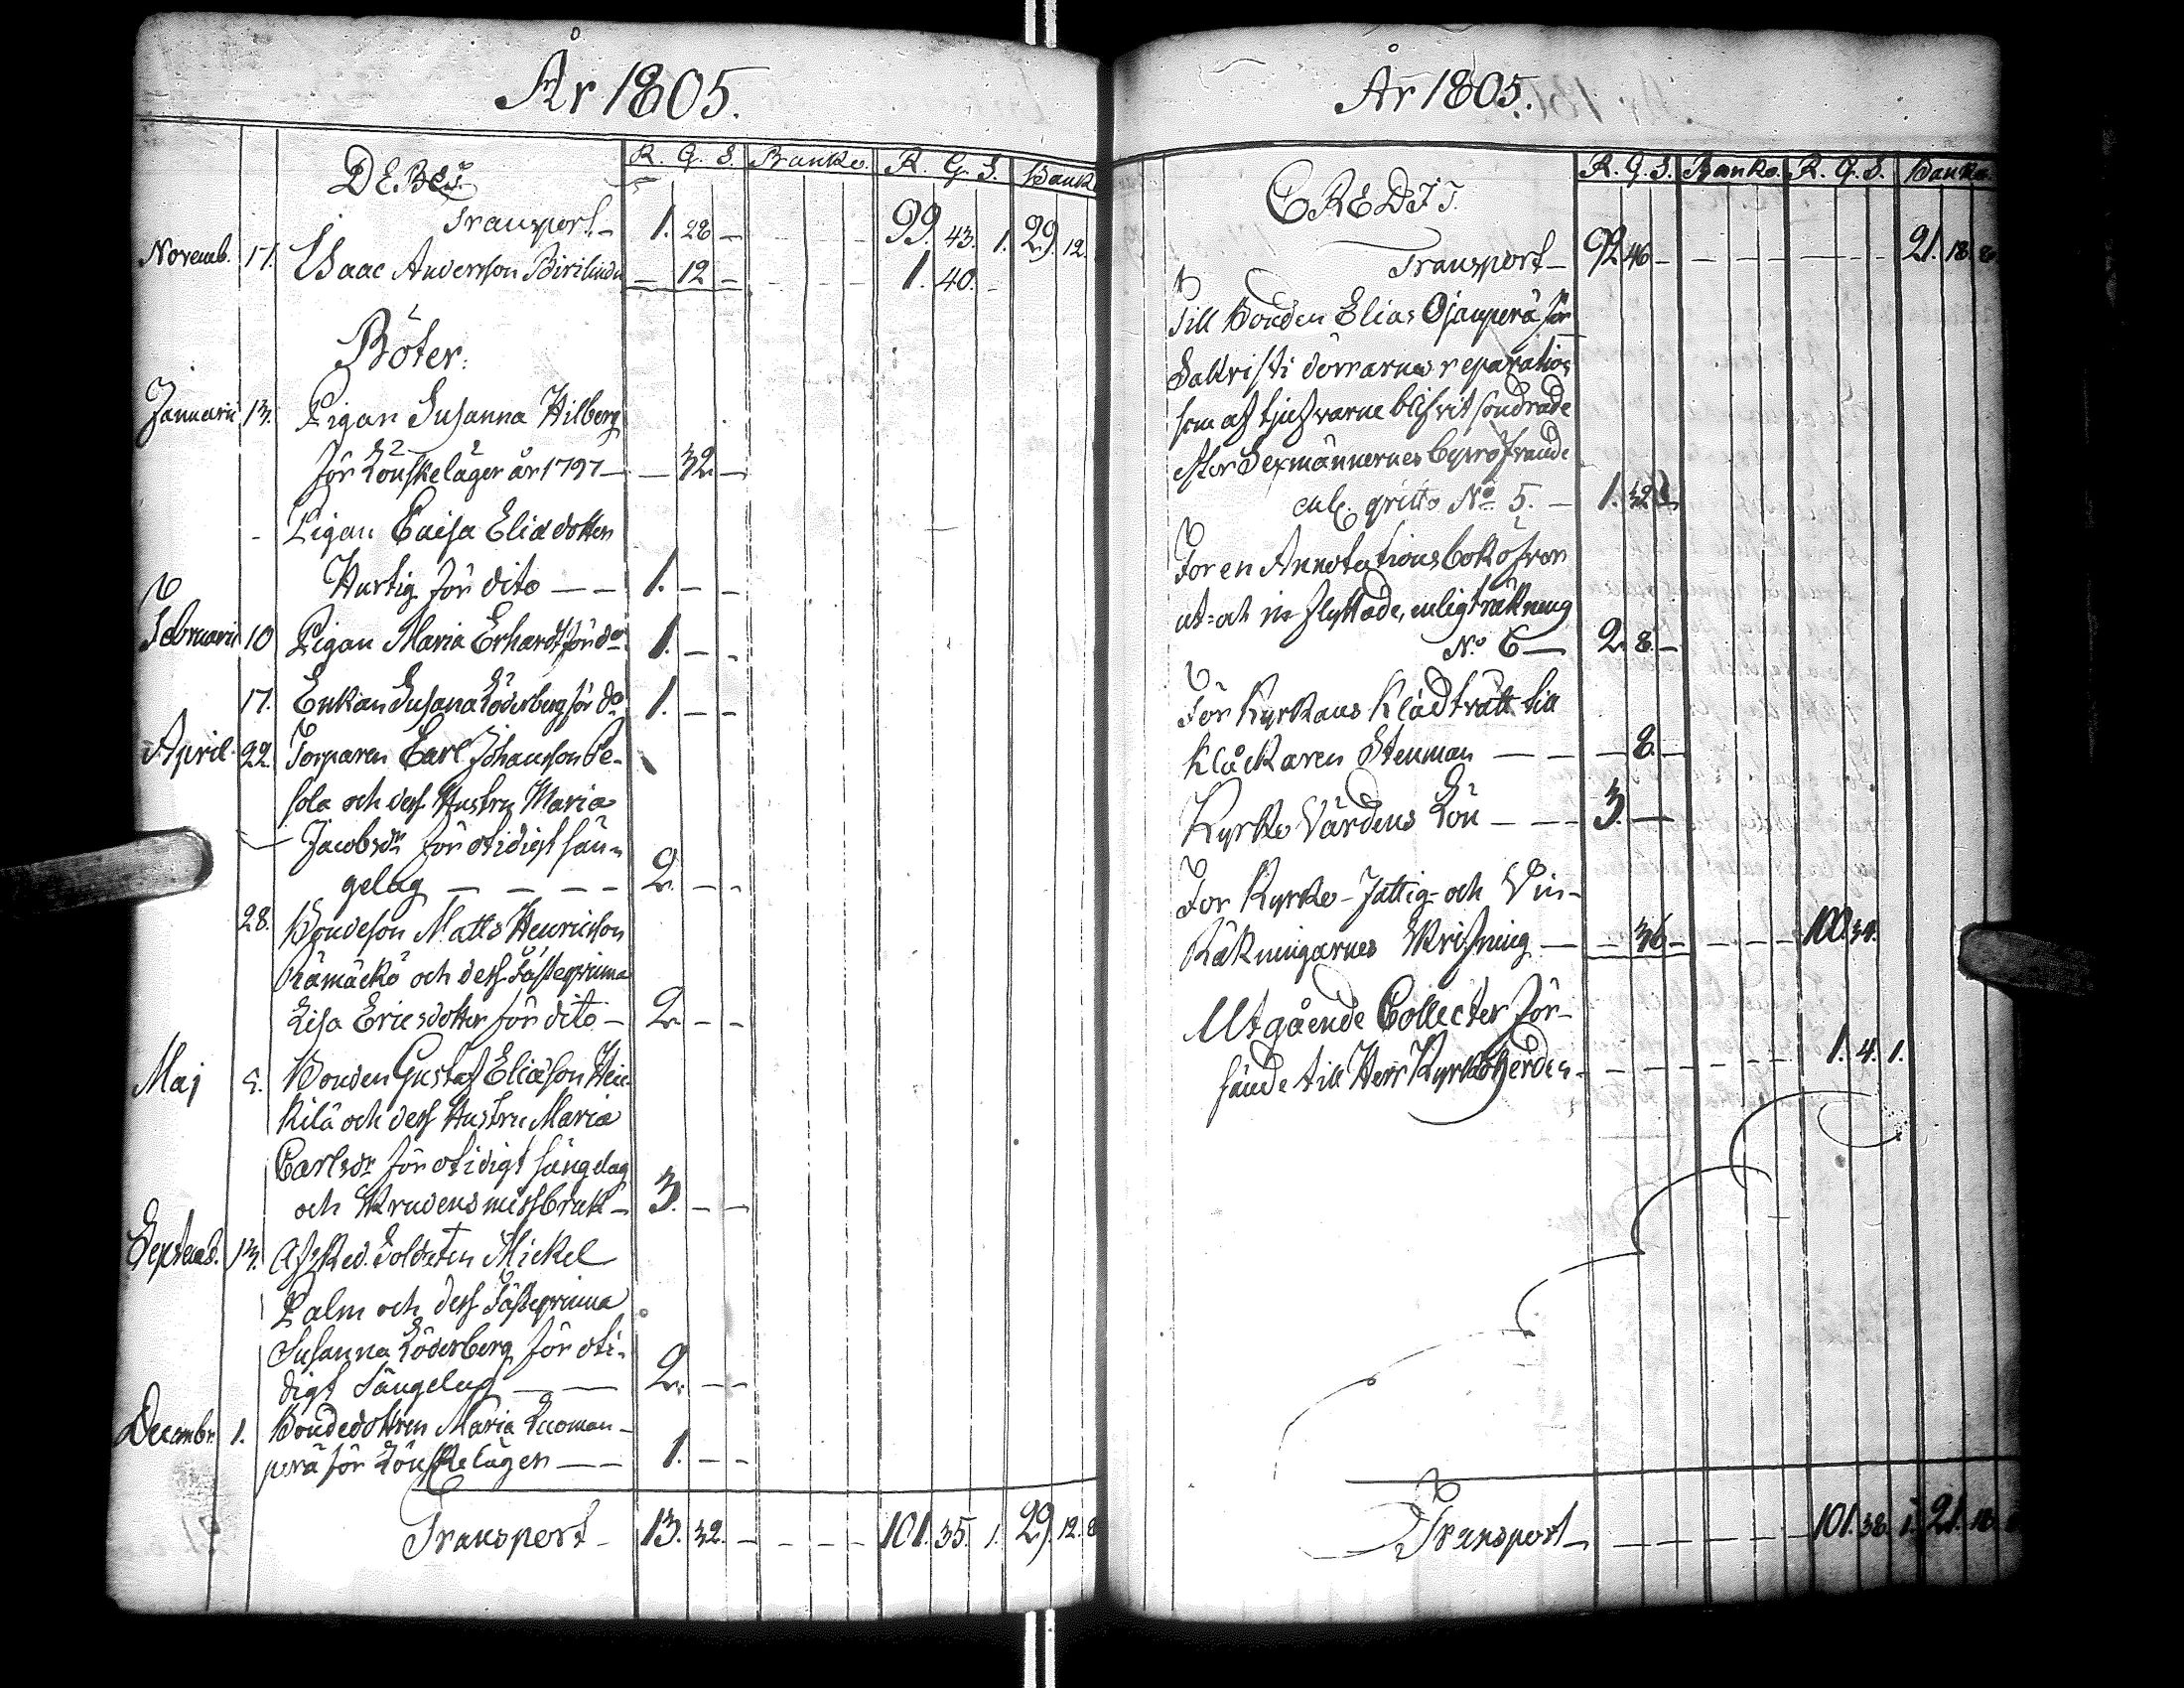 År 1805.
DEBET.
R. G. S. Banko. R. G. S. Banko
Transport 1. 28 — 99. 43. 1. 29. 12.
Novemb. 17. Isaac Andersson — 12 — 1. 40. —
Böter.
Januarii 13. Pigan Susanna Hilberg
för Lönskeläger år 1797 — — 32. —
- Pigan Caisa Eliædotter
Hurtig för dito — — 1. — —
Februarii 10 Pigan Maria Erhardt för do 1. — —
17. Enkan Susana Söderberg för do 1. — —
April. 22. Torparen Carl Johansson Pe-
sola och dess Hustru Maria
Jacobsdr för otidigt sän-
gelag — — — — 2. — —
28. Bondeson Matts Henricsson
Rämäckö och dess Fästeqvinna
Lisa Ericsdotter för dito — 2. — —
Maj 5. Bonden Gustaf Eliæson Hei-
kilä och dess Hustru Maria
Carlsdr för otidigt sängelag
och Skrudens missbruk — 3. — —
Septemb. 13. Afsked. Soldaten Mickel
Palm och dess Fästeqvinna
Susanna Söderberg för oti-
digt Sängelag — — 2. — —
Decembr. 1. Bondedottren Maria Luoman-
perä för Lönskeläger — — 1. — —
Transport — 13. 32. — — — — 101. 35. 1. 29. 12. 8
År 1805.
CREDIT.
R. G. S. Banko. R. G. S. Banko.
Transport — 92 46 — — — — — 21. 18. 8
Till Bonden Elias Ojanperä för
Sakristi dörrarnes reparation
som af tjufvarne blifvit söndrade
efter Sexmännernes bepröfvande
enl. qvitto No 5. — 1. 32
För en Annotations bok öfver
ut- och in flyttade, enligt räkning
No 6 — 2. 8. —
För Kyrkans Klädtvätt till
Klåckaren Stenman — — — 8. —
Kyrko Värdens Lön — — — 3. —
För Kyrko- Fattig- och Vin-
Räkningarnes Skrifning — — 36 — — — — 100. 34.
Utgående Collecter för-
sände till Herr Kyrkoherden — — — — — — 1. 4. 1.
Transport — — — — — — 101. 38. 1. 21. 18. 8